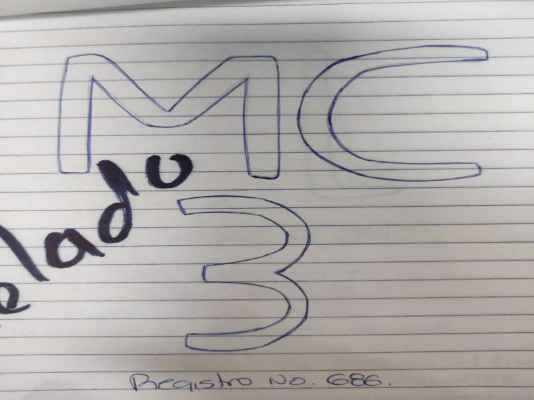 MC
elado
3
Registro No. 686.